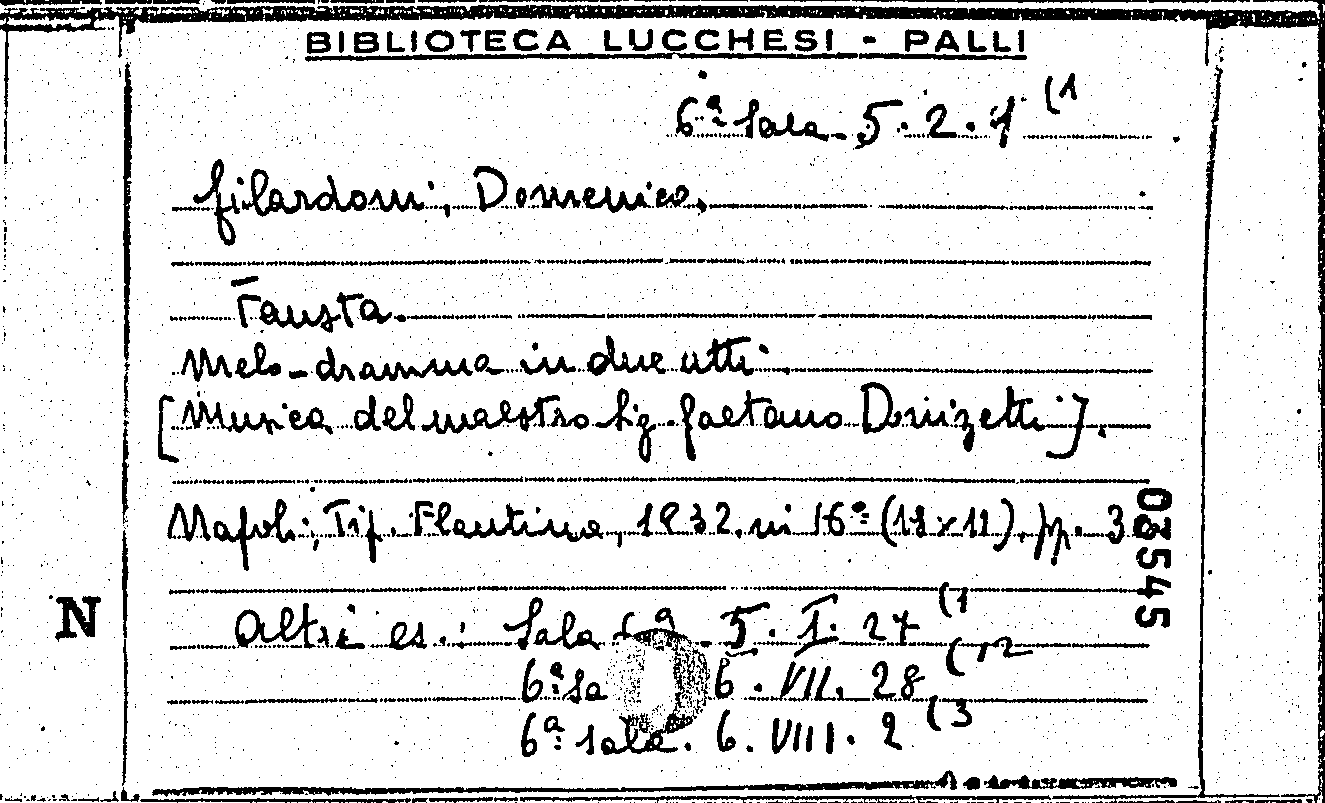 BIBLIOTECA LUCCHESI - PALLI
6ª Sala. 5. 2. 7 (1
Gilardoni, Domenico.
Fausta.
Melo-dramma in due atti.
[Musica del maestro Sig. Gaetano Donizetti].
Napoli, Tip. Flautina, 1832, in 16º (18x11), pp.
03545
N
Altri es.: Sala 5. I. 27 (1
6ª Sa 6. VII. 28 (12
6ª Sala. 6. VIII. 2 (3